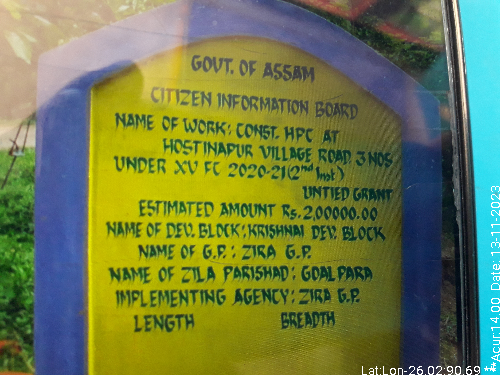 GOVT. OF ASSAM
CITIZEN INFORMATION BOARD
NAME OF WORK: CONST. HPC AT
HOSTINAPUR VILLAGE ROAD 3 NOS
UNDER XV FC 2020-21 (2nd Inst)
UNTIED GRANT
ESTIMATED AMOUNT Rs. 2,00000.00
NAME OF DEV. BLOCK: KRISHNAI DEV. BLOCK
NAME OF G.P.: ZIRA G.P.
NAME OF ZILA PARISHAD: GOALPARA
IMPLEMENTING AGENCY: ZIRA G.P.
LENGTH BREADTH
Lat:Lon-26.02:90.69
Acur:14.00 Date:13-11-2023